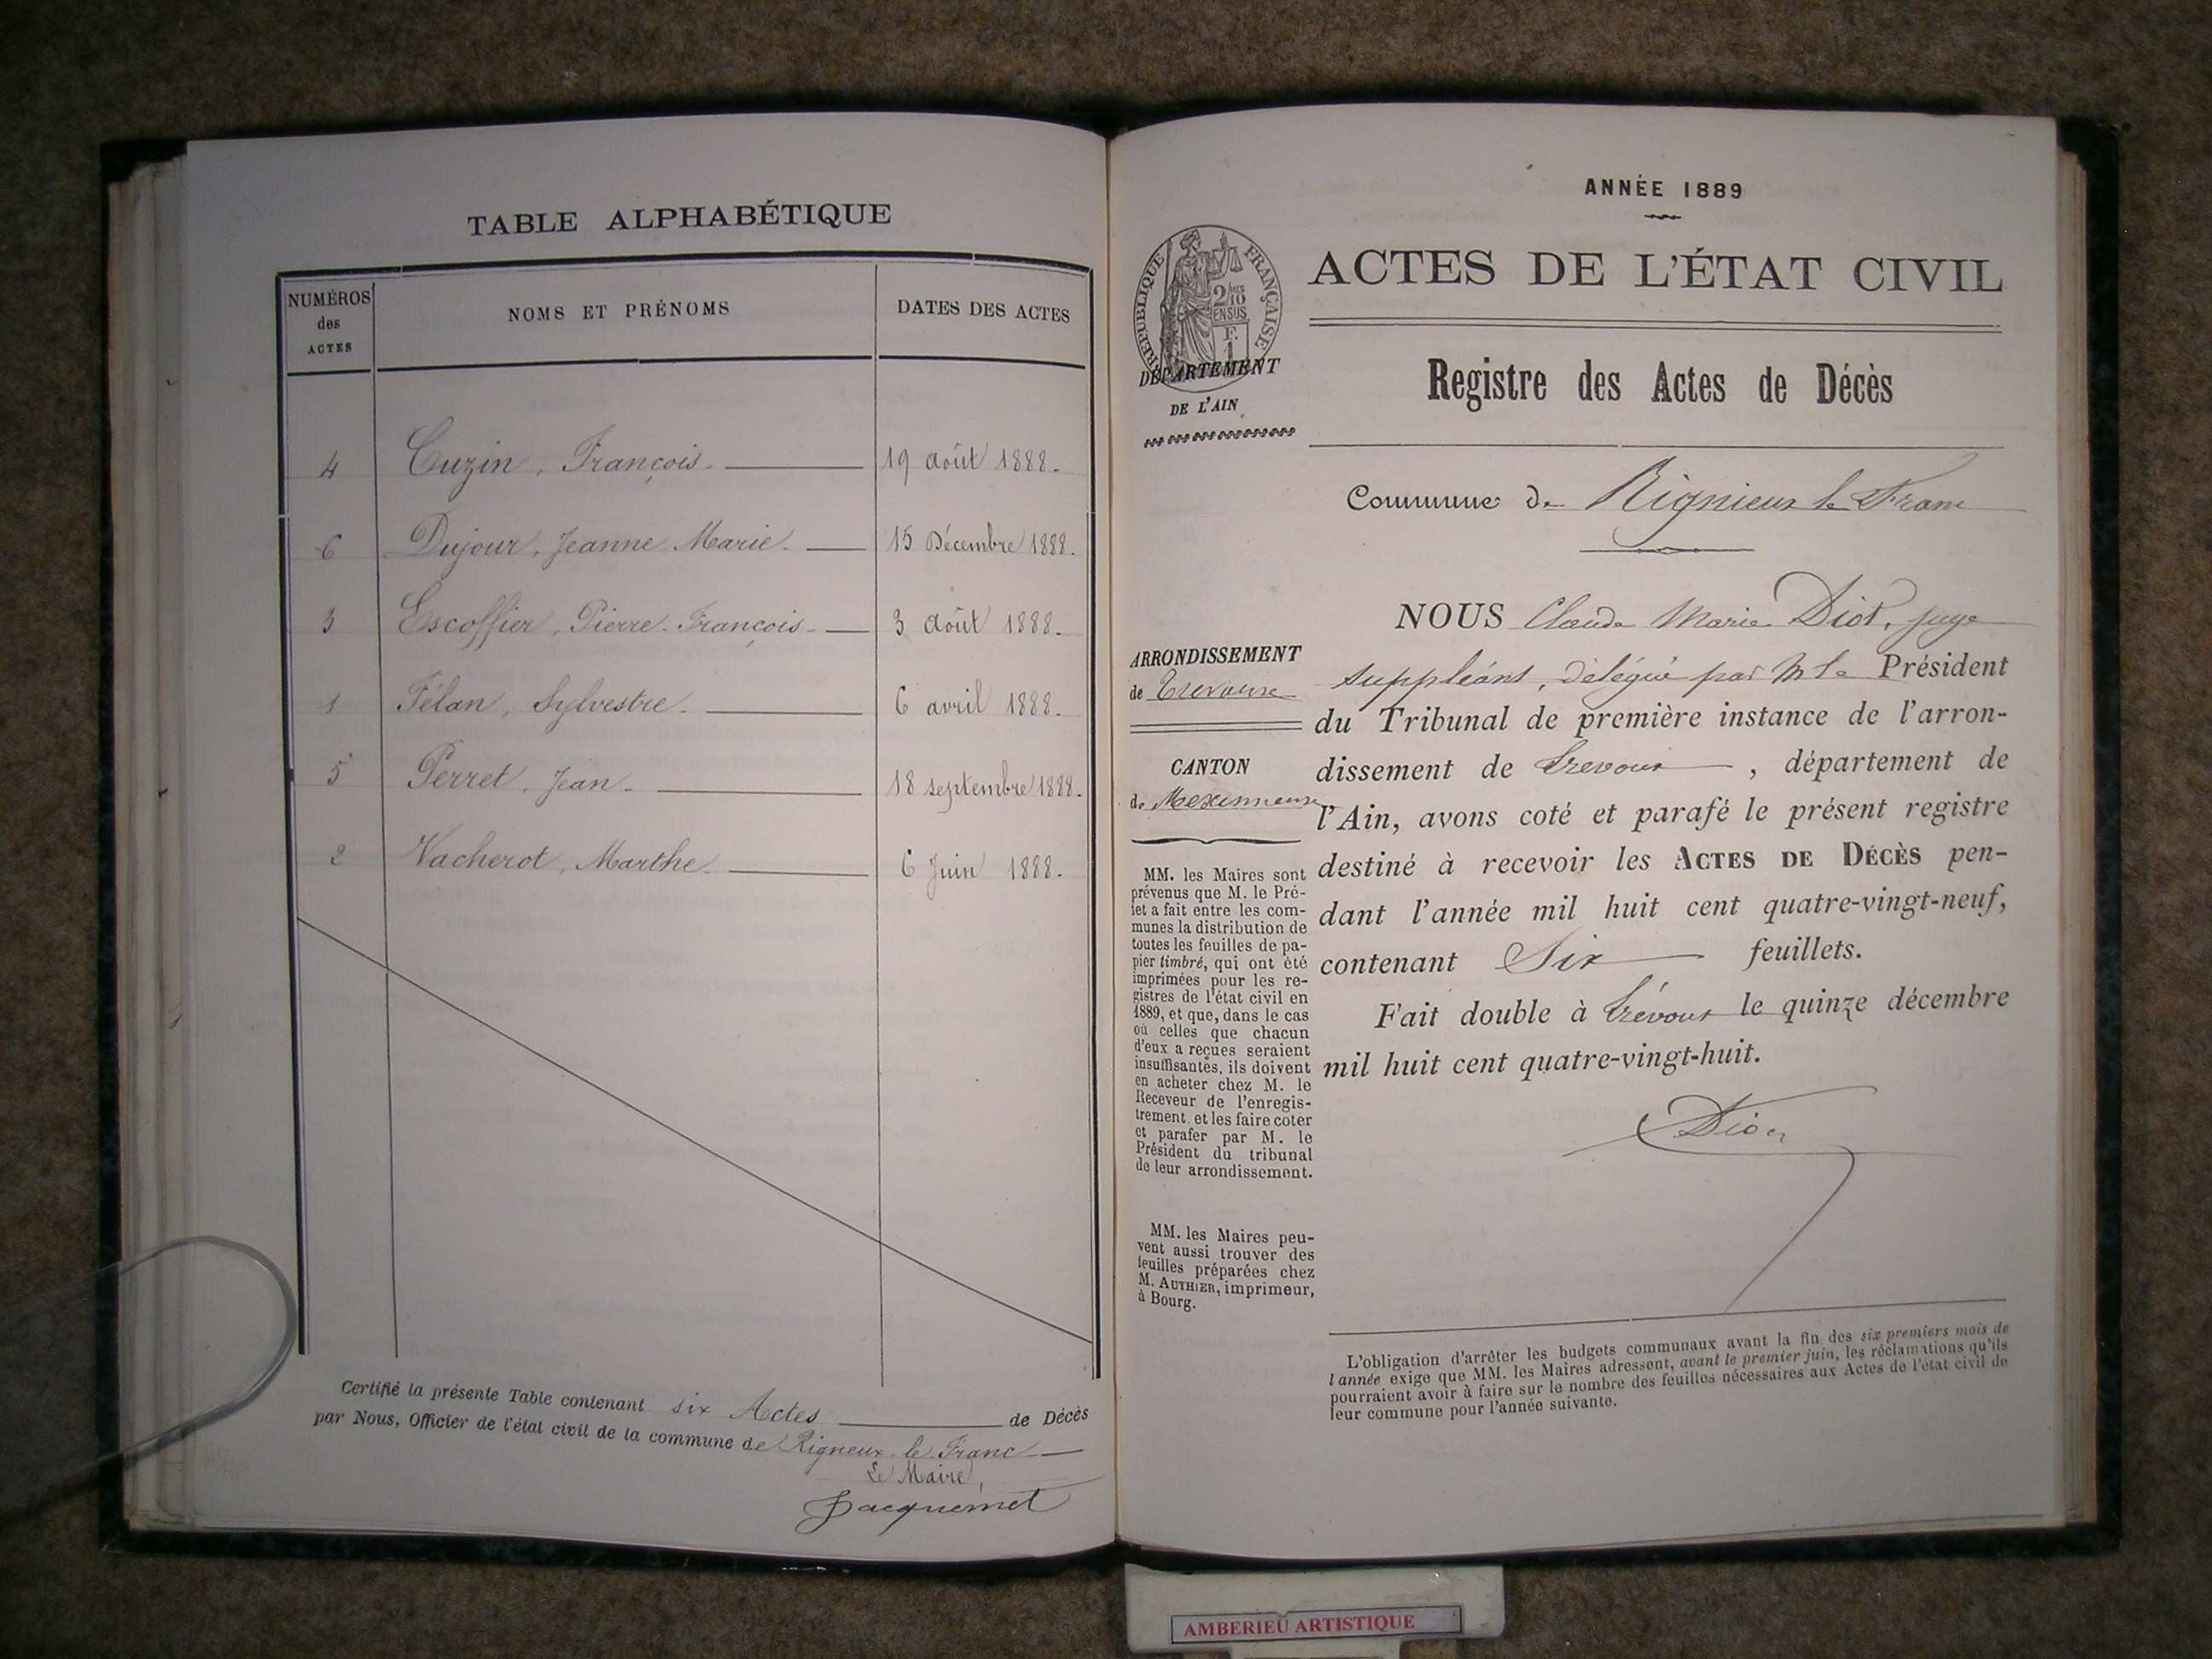 TABLE ALPHABÉTIQUE
NUMÉROS
des
ACTES
NOMS ET PRÉNOMS
DATES DES ACTES
4 Cuzin, François. 19 août 1888.
6 Dujour, Jeanne Marie. 15 Décembre 1888.
3 Escoffier, Pierre-François. 3 août 1888.
1 Félan, Sylvestre. 6 avril 1888.
5 Perret, Jean. 18 septembre 1888.
2 Vacherot, Marthe. 6 Juin 1888.
Certifié la présente Table contenant six Actes de Décès
par Nous, Officier de l'état civil de la commune de Rigneux-le-Franc
Le Maire,
Jacquemet
ANNÉE 1889
ACTES DE L'ÉTAT CIVIL
RÉPUBLIQUE FRANÇAISE
2/10
EN SUS
F.
1
DÉPARTEMENT
DE L'AIN
Registre des Actes de Décès
Commune de Rignieux le Franc
ARRONDISSEMENT
de Trévoux
CANTON
de Meximieux
MM. les Maires sont
prévenus que M. le Pré-
fet a fait entre les com-
munes la distribution de
toutes les feuilles de pa-
pier timbré, qui ont été
imprimées pour les re-
gistres de l'état civil en
1889, et que, dans le cas
où celles que chacun
d'eux a reçues seraient
insuffisantes, ils doivent
en acheter chez M. le
Receveur de l'enregis-
trement et les faire coter
et parafer par M. le
Président du tribunal
de leur arrondissement.
MM. les Maires peu-
vent aussi trouver des
feuilles préparées chez
M. AUTHIER, imprimeur,
à Bourg.
NOUS Claude Marie Diot, juge
suppléant, délégué par M le Président
du Tribunal de première instance de l'arron-
dissement de Trevoux, département de
l'Ain, avons coté et parafé le présent registre
destiné à recevoir les ACTES DE DÉCÈS pen-
dant l'année mil huit cent quatre-vingt-neuf,
contenant Six feuillets.
Fait double à Trévoux le quinze décembre
mil huit cent quatre-vingt-huit.
L'obligation d'arrêter les budgets communaux avant la fin des six premiers mois de
l'année exige que MM. les Maires adressent, avant le premier juin, les réclamations qu'ils
pourraient avoir à faire sur le nombre des feuilles nécessaires aux Actes de l'état civil de
leur commune pour l'année suivante.
AMBERIEU ARTISTIQUE